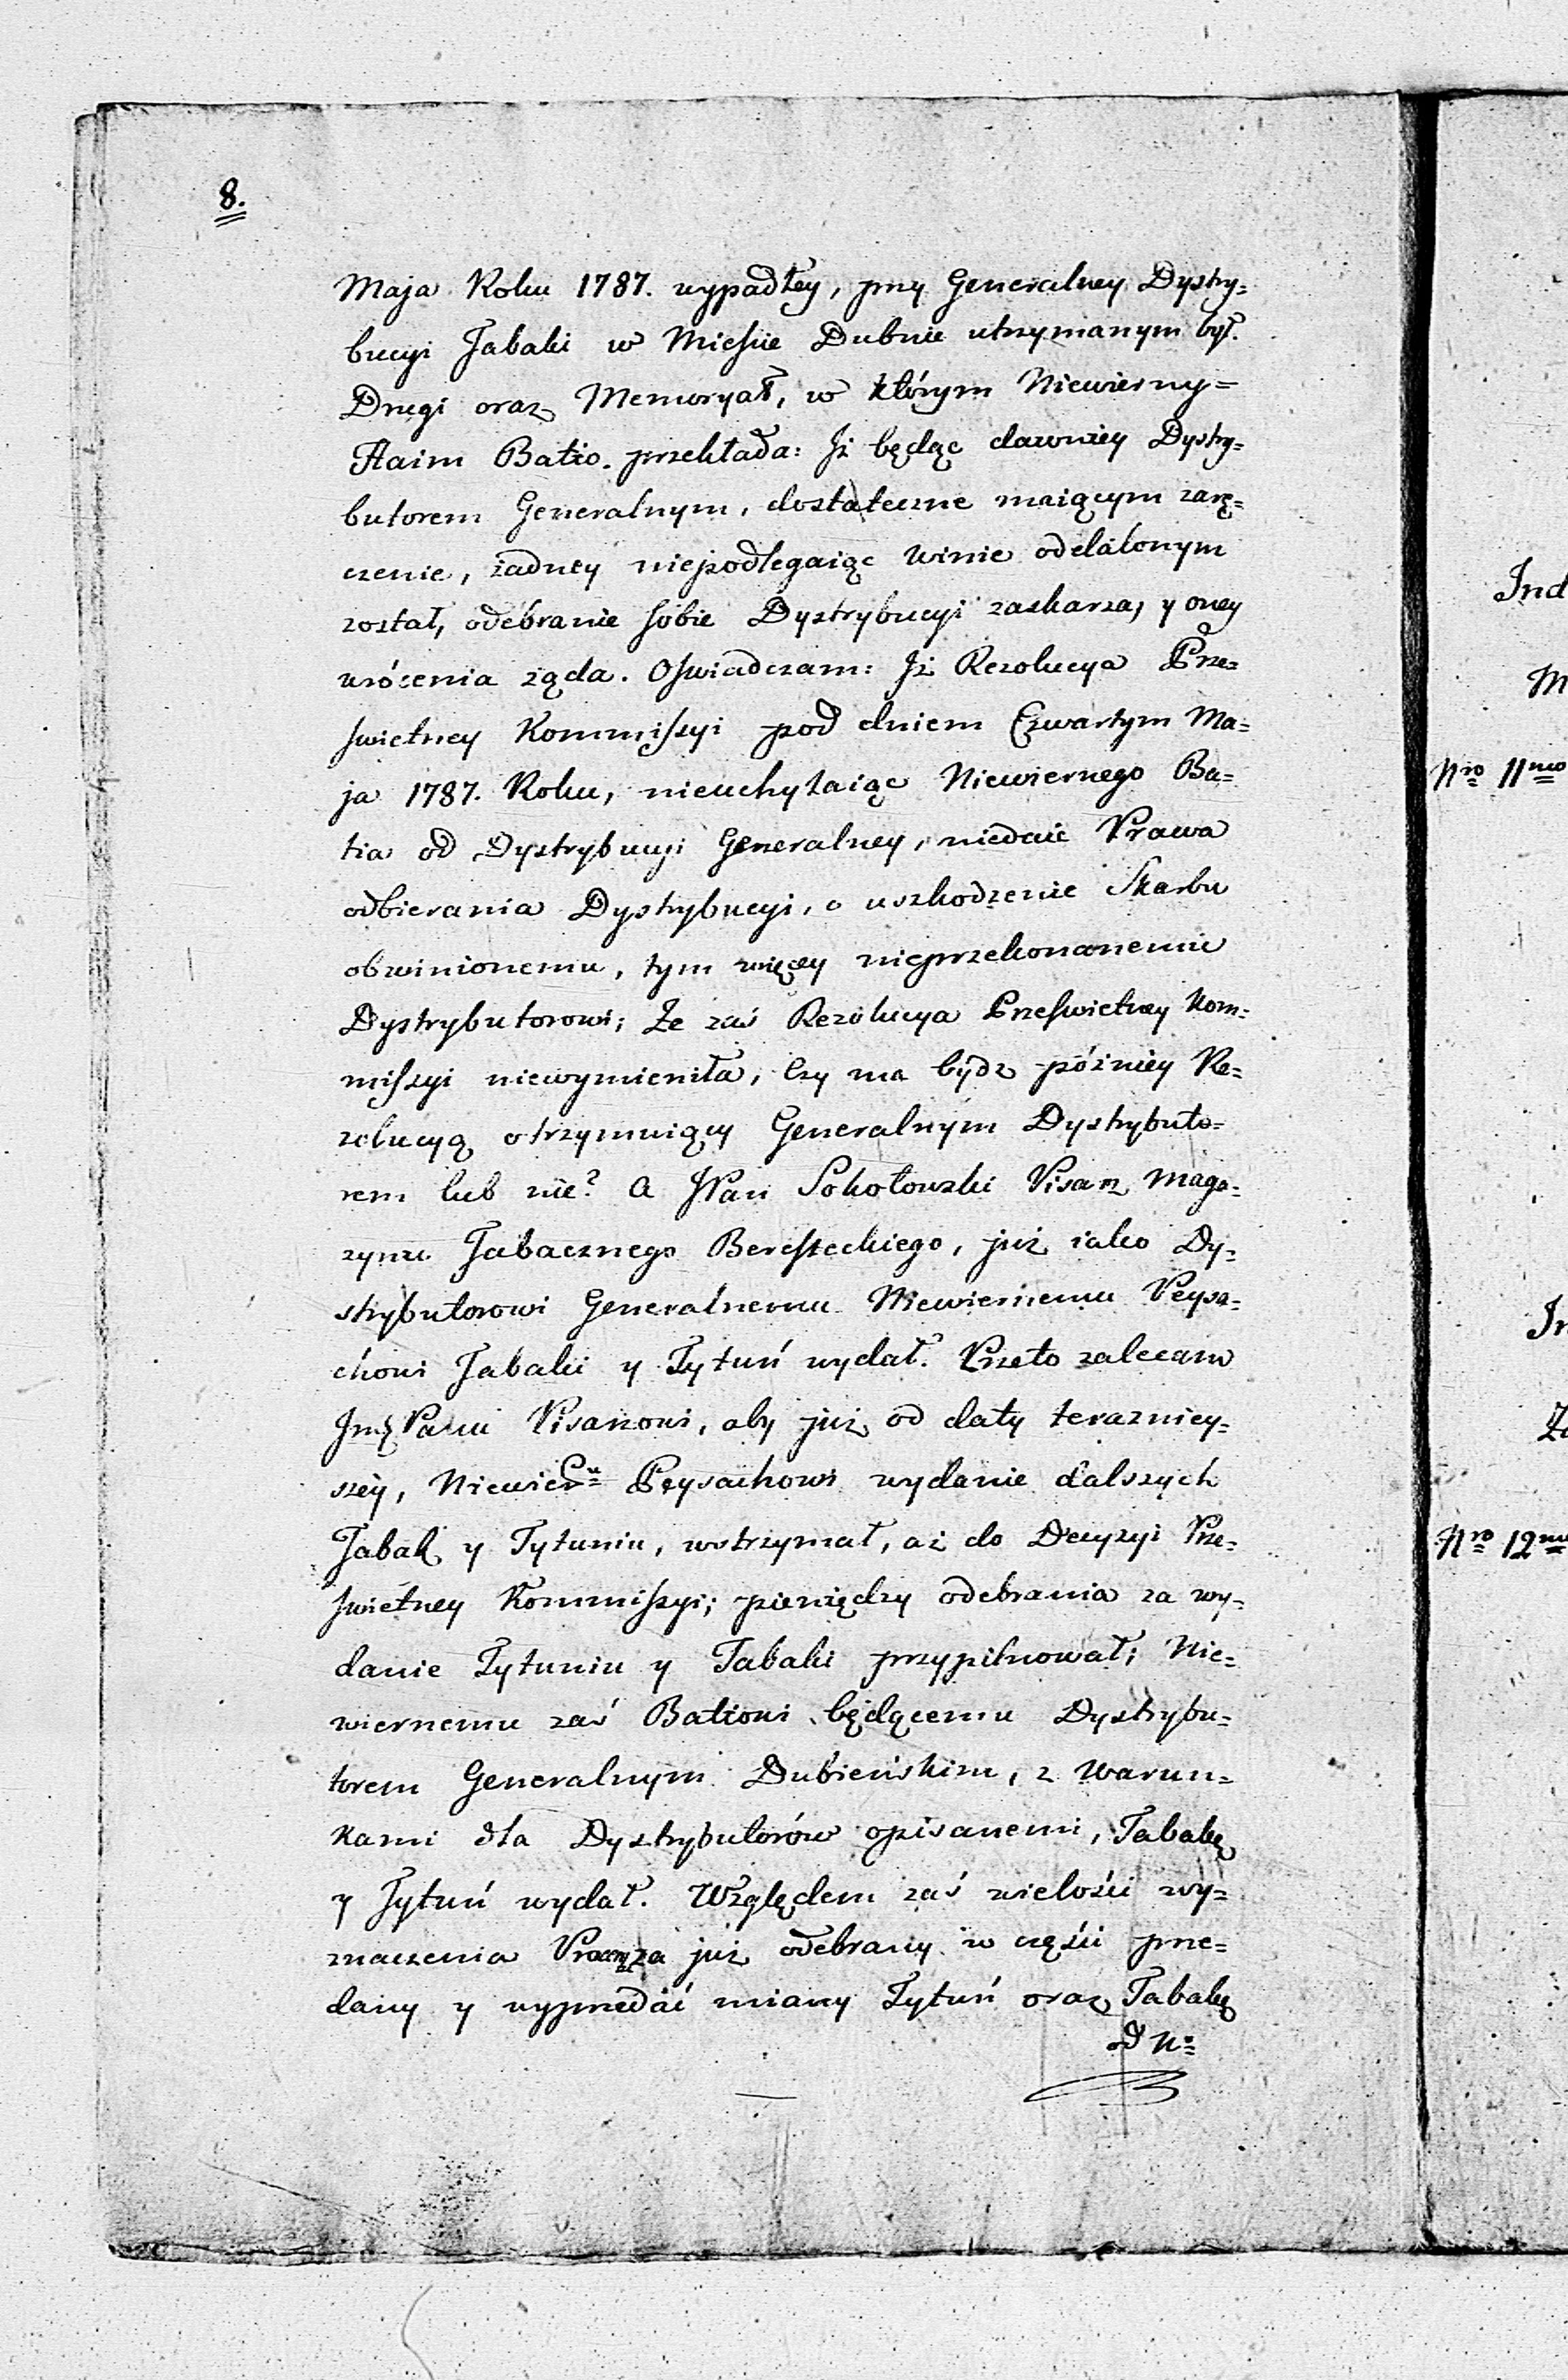 8.
Maja Roku 1787. wypadłey, przy Generalney Dystry=
bucyi Tabaki w Mieście Dubnie utrzymanym był.
Drugi oraz Memoryał, w którym Niewierny=
Haim Batio. przekłada: Jż będąc dawniey Dystry=
butorem Generalnym, dostateczne maiącym zarę=
czenie, żadney niepodlegaiąc winie oddalonym
został, odebranie sobie Dystrybucyi zaskarza, y oney
wrócenia ząda. Oświadczam: Jż Rezolucya Prze=
świetney Kommissyi pod dniem Czwartym Ma=
ja 1787. Roku, nieuchylaiąc Niewiernego Ba=
tia od Dystrybucyi Generalney, niedaie Prawa
odbierania Dystrybucyi, o uszkodzenie Skarbu
obwinionemu, tym więcey nieprzekonanemu
Dystrybutorowi; Że zaś Rezolucya Prześwietney Kom=
missyi niewymieniła, Czy ma bydz późniey Re=
zolucyą otrzymuiący Generalnym Dystrybuto=
rem lub nie? a JPan Sokołowski Pisarz Maga=
zynu Tabacznego Beresteckiego, już iako Dy=
strybutorowi Generalnemu Niewiernemu Peysa=
chowi Tabaki y Tytuń wydał. Przeto zalecam
Jmć Panu Pisarzowi, aby już od daty teraźniey=
szey, Niewier Peysachowi wydanie dalszych
Tabak y Tytuniu, wstrzymał, aż do Decyzyi Prze=
świetney Kommissyi; pieniędzy odebrania za wy=
danie Tytuniu y Tabaki przypilnował; Nie=
wiernemu zaś Batiowi będącemu Dystrybu=
torem Generalnym Dubieńskim, z Warun=
kami dla Dystrybutorów opisanemi, Tabakę
y Tytuń wydał. Względem zaś wielości wy=
znaczenia już odebrany w części prze=
dany y wyprzedać miany Tytuń oraz Tabakę
Ind
M
Nro 11mo
Nro 12mo